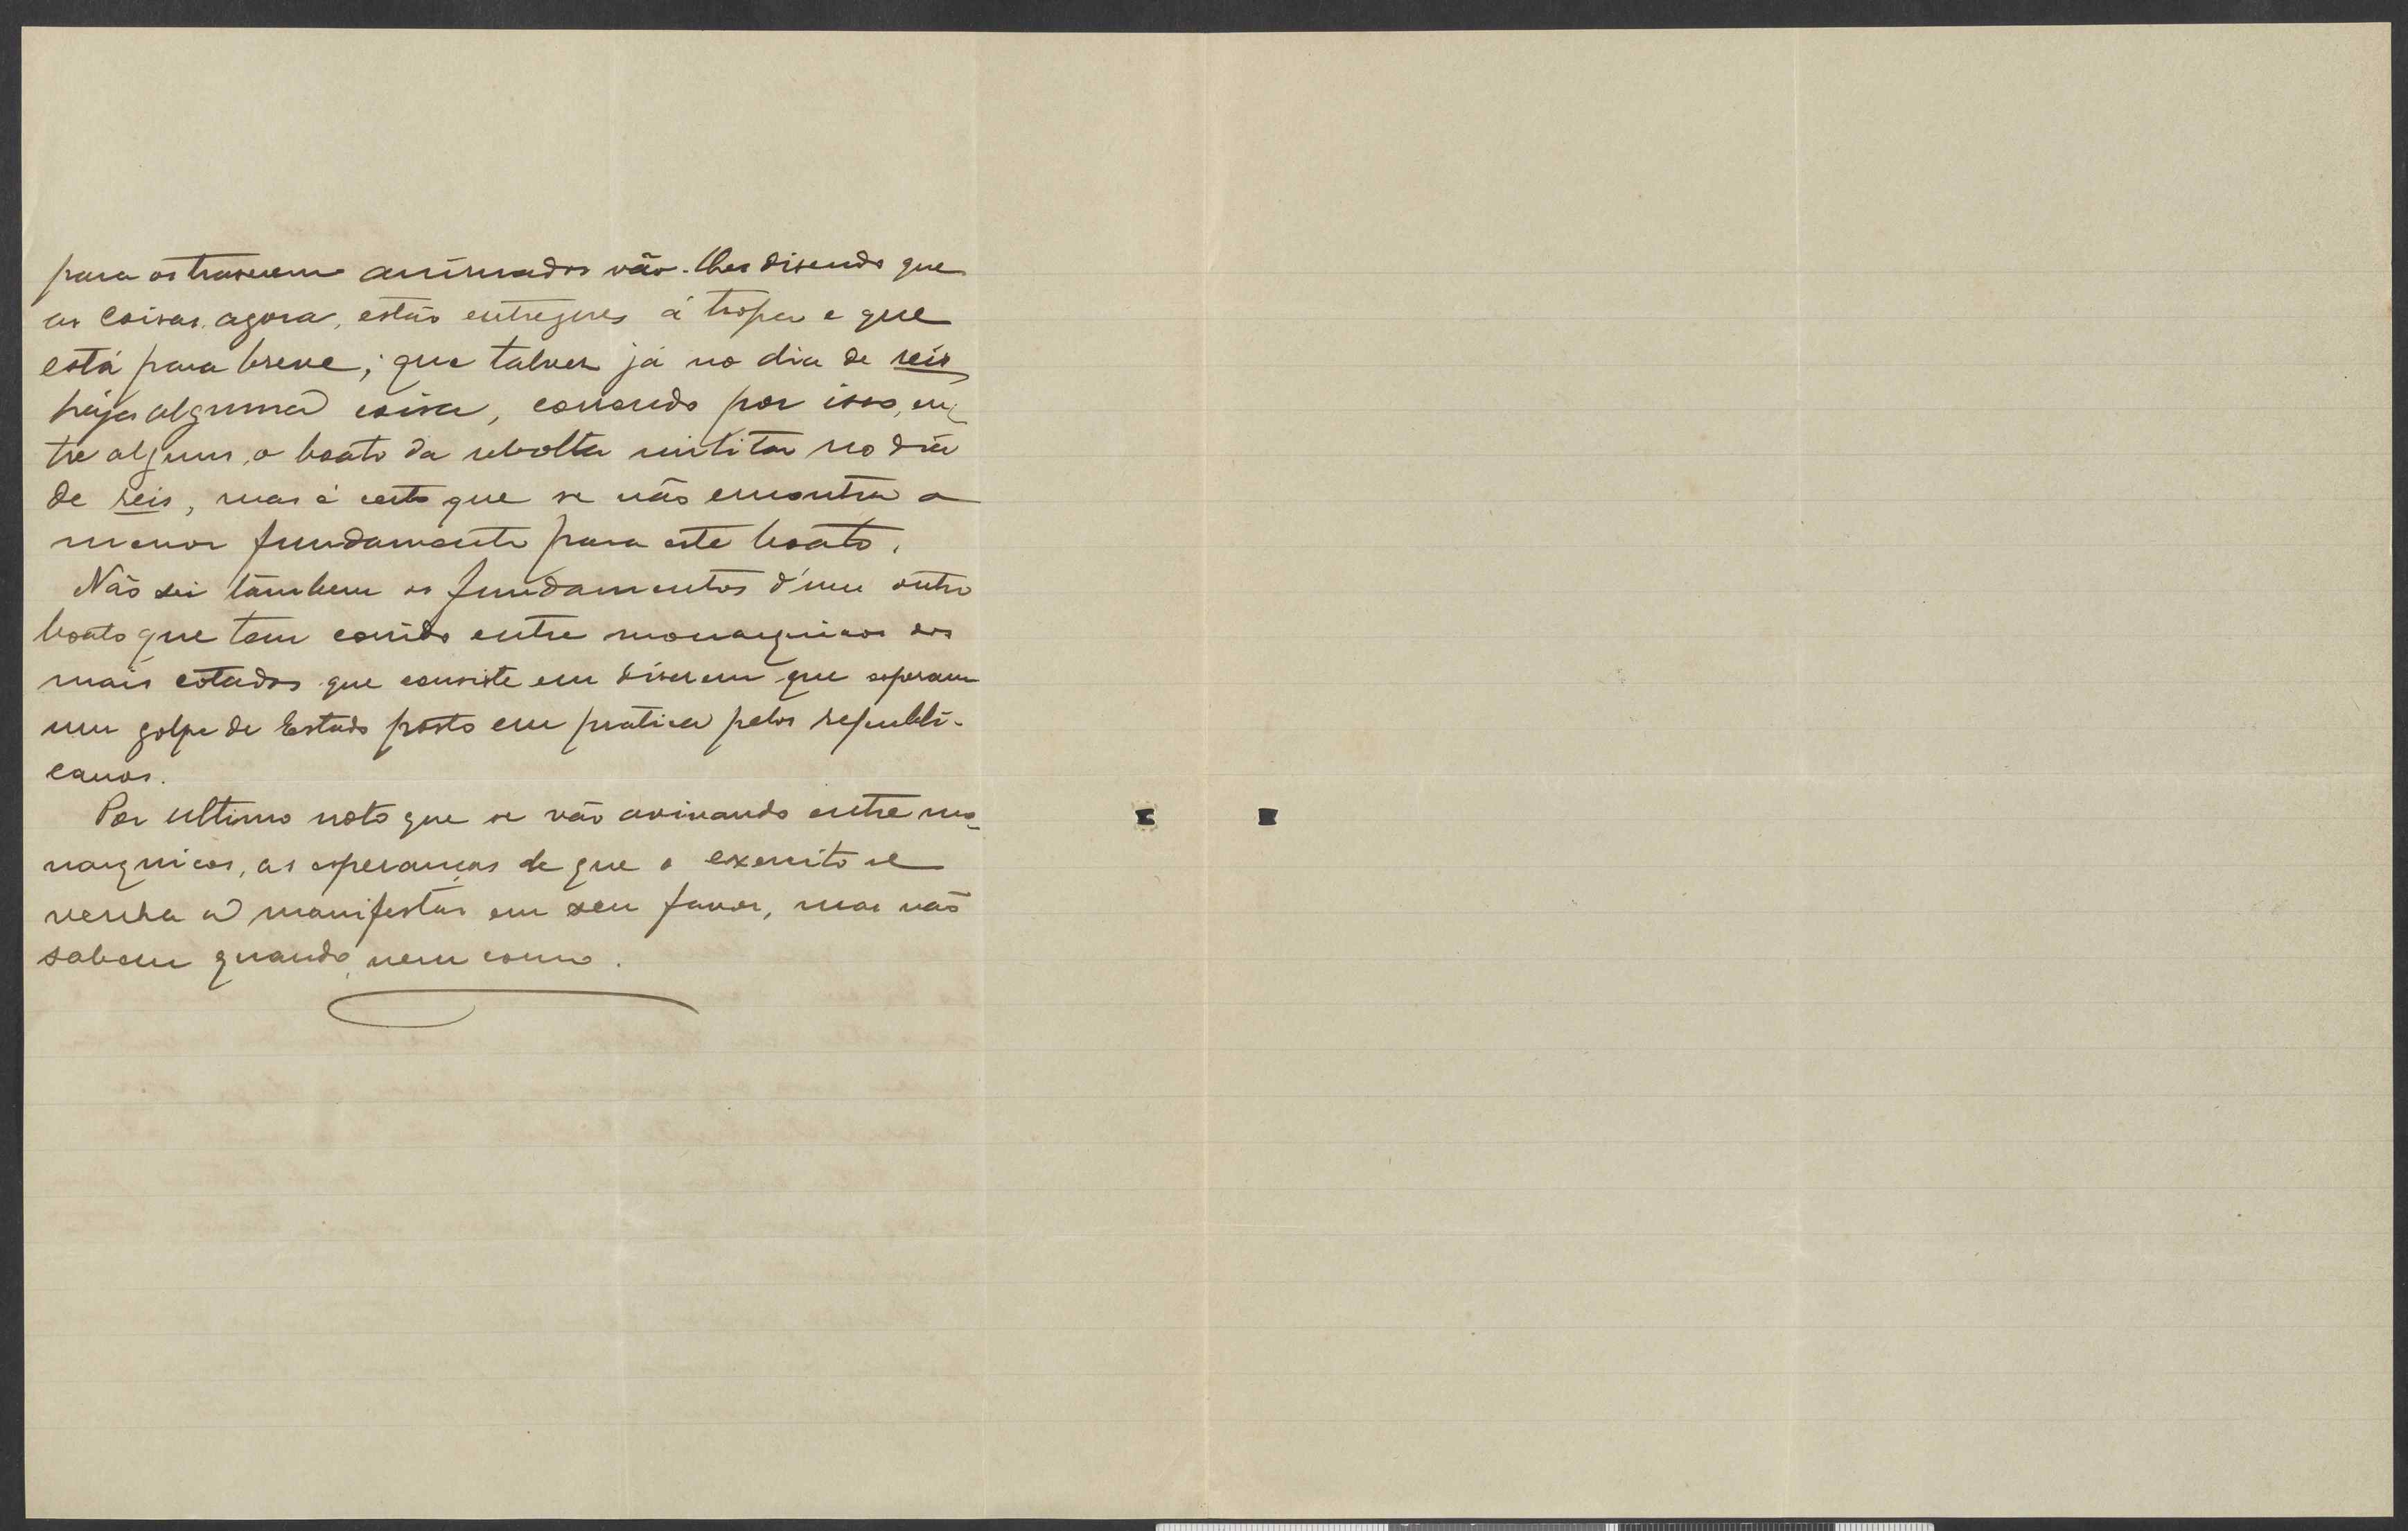 para os traserem animados vão-lhes disendo que
as coisas, agora, estão entregues á tropa e que
está para breve; que talves já no dia de seis
haja alguma coisa, correndo por isso, en-
tre alguns, o boato da rebolta militar no dia
de seis, mas é certo que se não encontra o
menor fundamento para este boato.
Não sei tambem os fundamentos d'um outro
boato que tem corrido entre monarquicos dos
mais cotados que consiste em diserem que esperam
um golpe de Estado posto em pratica pelos republi-
canos.
Por ultimo noto que se vão avivando entre mo-
narquicos, as esperanças de que o exercito se
venha a manifestar em seu favor, mas não
sabem quando, nem como.